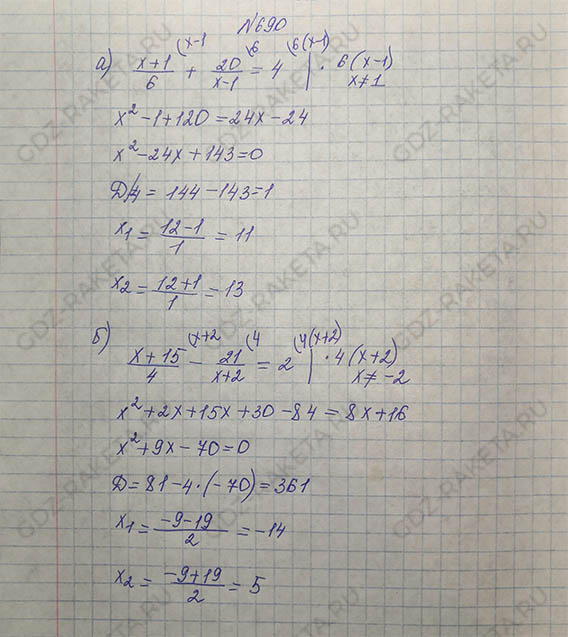 №690
а) (x+1)/6 (x-1 + 20/(x-1) (6 = 4 (6(x-1) | · 6(x-1)
x≠1
x²-1+120=24x-24
x²-24x+143=0
Д/4 = 144-143=1
x₁ = (12-1)/1 = 11
x₂ = (12+1)/1 = 13
б) (x+15)/4 (x+2 - 21/(x+2) (4 = 2 (4(x+2) | · 4(x+2)
x≠-2
x²+2x+15x+30-84=8x+16
x²+9x-70=0
Д=81-4·(-70)=361
x₁ = (-9-19)/2 = -14
x₂ = (-9+19)/2 = 5
GDZ-RAKETA.RU